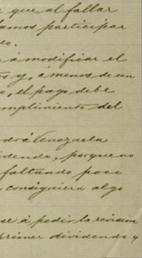 que al faltar
amos participar
a modificar el
y, a menos de un
, el pago debe
mplimiento del
Venezuela
idendo, porque no
faltando poco
consiguiera algo
se á pedir la revision
primer dividendo y